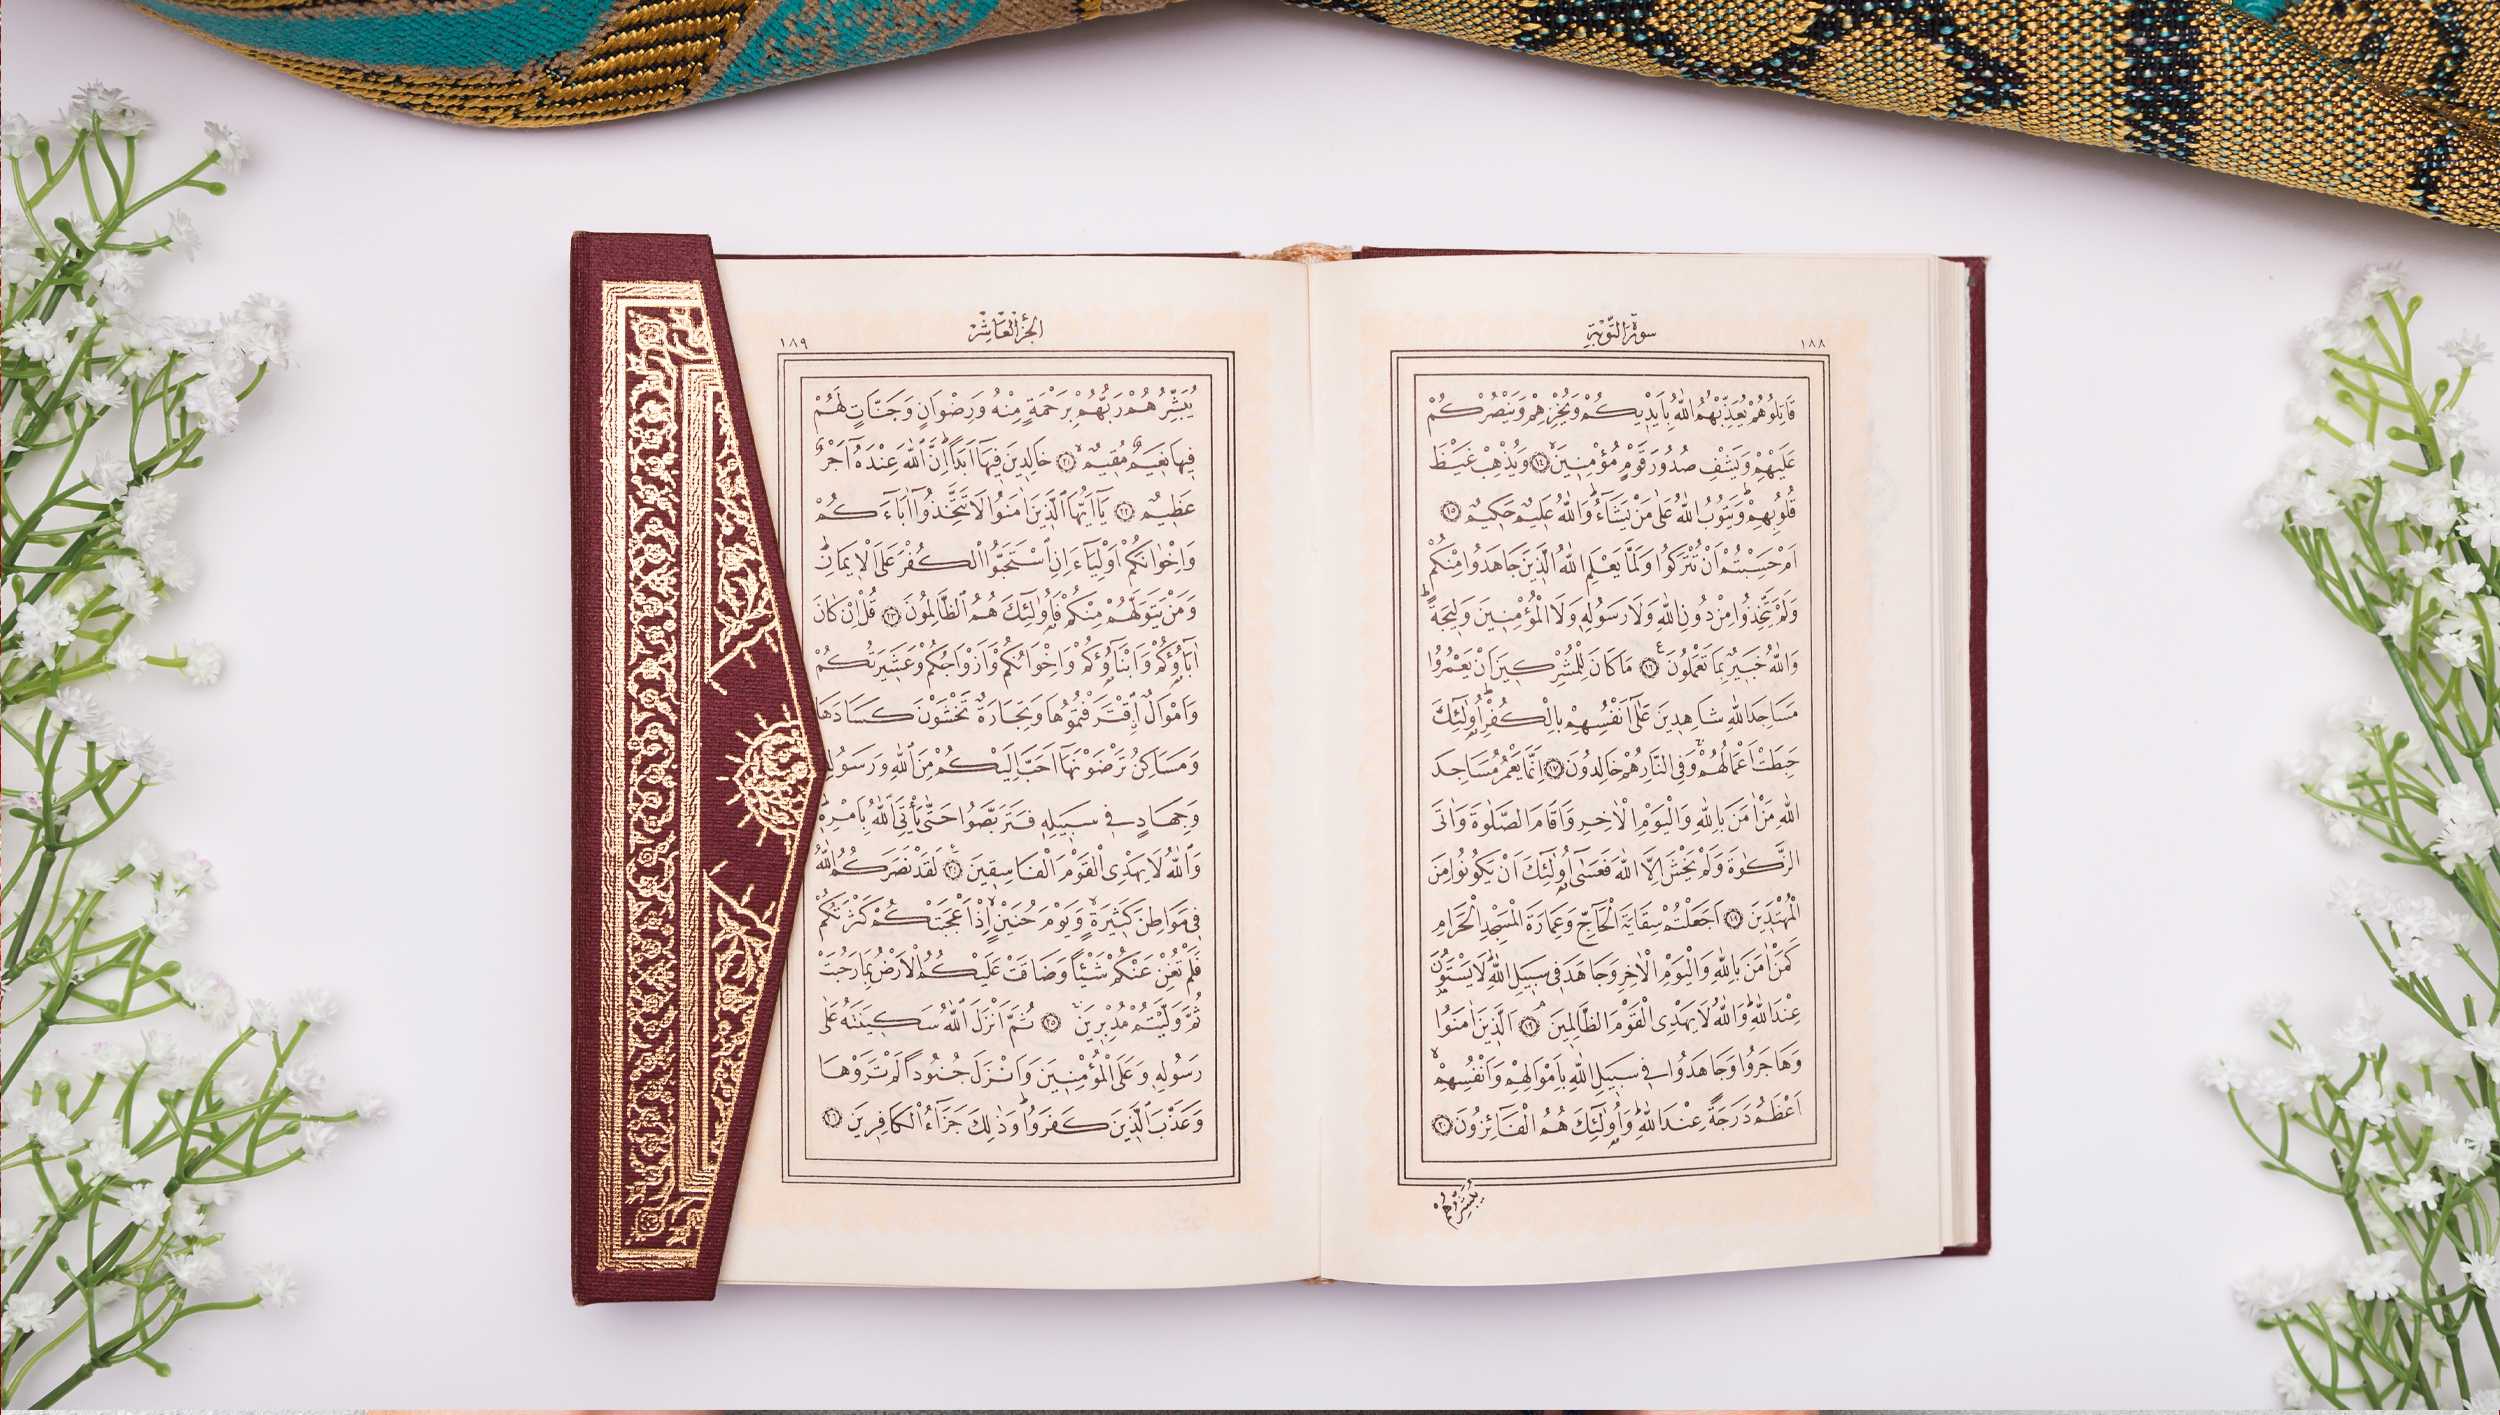 ١٨٨
سورة التوبة
قَاتِلُوهُمْ يُعَذِّبْهُمُ اللّٰهُ بِاَيْدِيكُمْ وَيُخْزِهِمْ وَيَنْصُرْكُمْ
عَلَيْهِمْ وَيَشْفِ صُدُورَ قَوْمٍ مُؤْمِنِينَۙ ﴿١٤﴾ وَيُذْهِبْ غَيْظَ
قُلُوبِهِمْۜ وَيَتُوبُ اللّٰهُ عَلٰى مَنْ يَشَٓاءُۜ وَاللّٰهُ عَلِيمٌ حَكِيمٌ ﴿١٥﴾
اَمْ حَسِبْتُمْ اَنْ تُتْرَكُوا وَلَمَّا يَعْلَمِ اللّٰهُ الَّذِينَ جَاهَدُوا مِنْكُمْ
وَلَمْ يَتَّخِذُوا مِنْ دُونِ اللّٰهِ وَلَا رَسُولِهِ وَلَا الْمُؤْمِنِينَ وَلِيجَةًۜ
وَاللّٰهُ خَبِيرٌ بِمَا تَعْمَلُونَ ﴿١٦﴾ مَا كَانَ لِلْمُشْرِكِينَ اَنْ يَعْمُرُوا
مَسَاجِدَ اللّٰهِ شَاهِدِينَ عَلٰٓى اَنْفُسِهِمْ بِالْكُفْرِۜ اُو۬لٰٓئِكَ
حَبِطَتْ اَعْمَالُهُمْۚ وَفِي النَّارِ هُمْ خَالِدُونَ ﴿١٧﴾ اِنَّمَا يَعْمُرُ مَسَاجِدَ
اللّٰهِ مَنْ اٰمَنَ بِاللّٰهِ وَالْيَوْمِ الْاٰخِرِ وَاَقَامَ الصَّلٰوةَ وَاٰتَى
الزَّكٰوةَ وَلَمْ يَخْشَ اِلَّا اللّٰهَ فَعَسٰٓى اُو۬لٰٓئِكَ اَنْ يَكُونُوا مِنَ
الْمُهْتَدِينَ ﴿١٨﴾ اَجَعَلْتُمْ سِقَايَةَ الْحَٓاجِّ وَعِمَارَةَ الْمَسْجِدِ الْحَرَامِ
كَمَنْ اٰمَنَ بِاللّٰهِ وَالْيَوْمِ الْاٰخِرِ وَجَاهَدَ فِي سَبِيلِ اللّٰهِۜ لَا يَسْتَوُ۫نَ
عِنْدَ اللّٰهِۜ وَاللّٰهُ لَا يَهْدِي الْقَوْمَ الظَّالِمِينَۢ ﴿١٩﴾ اَلَّذِينَ اٰمَنُوا
وَهَاجَرُوا وَجَاهَدُوا فِي سَبِيلِ اللّٰهِ بِاَمْوَالِهِمْ وَاَنْفُسِهِمْۙ
اَعْظَمُ دَرَجَةً عِنْدَ اللّٰهِۜ وَاُو۬لٰٓئِكَ هُمُ الْفَٓائِزُونَ ﴿٢٠﴾
يُبَشِّرُهُمْ
الجزء العاشر
١٨٩
يُبَشِّرُهُمْ رَبُّهُمْ بِرَحْمَةٍ مِنْهُ وَرِضْوَانٍ وَجَنَّاتٍ لَهُمْ
فِيهَا نَعِيمٌ مُقِيمٌۙ ﴿٢١﴾ خَالِدِينَ فِيهَٓا اَبَدًاۜ اِنَّ اللّٰهَ عِنْدَهُٓ اَجْرٌ
عَظِيمٌ ﴿٢٢﴾ يَٓا اَيُّهَا الَّذِينَ اٰمَنُوا لَا تَتَّخِذُٓوا اٰبَٓاءَكُمْ
وَاِخْوَانَكُمْ اَوْلِيَٓاءَ اِنِ اسْتَحَبُّوا الْكُفْرَ عَلَى الْاِيمَانِۜ
وَمَنْ يَتَوَلَّهُمْ مِنْكُمْ فَاُو۬لٰٓئِكَ هُمُ الظَّالِمُونَ ﴿٢٣﴾ قُلْ اِنْ كَانَ
اٰبَٓاؤُ۬كُمْ وَاَبْنَٓاؤُ۬كُمْ وَاِخْوَانُكُمْ وَاَزْوَاجُكُمْ وَعَشِيرَتُكُمْ
وَاَمْوَالٌ اقْتَرَفْتُمُوهَا وَتِجَارَةٌ تَخْشَوْنَ كَسَادَهَا
وَمَسَاكِنُ تَرْضَوْنَهَٓا اَحَبَّ اِلَيْكُمْ مِنَ اللّٰهِ وَرَسُولِهِ
وَجِهَادٍ فِي سَبِيلِهِ فَتَرَبَّصُوا حَتّٰى يَأْتِيَ اللّٰهُ بِاَمْرِهِۜ
وَاللّٰهُ لَا يَهْدِي الْقَوْمَ الْفَاسِقِينَ ﴿٢٤﴾ لَقَدْ نَصَرَكُمُ اللّٰهُ
فِي مَوَاطِنَ كَثِيرَةٍۙ وَيَوْمَ حُنَيْنٍۙ اِذْ اَعْجَبَتْكُمْ كَثْرَتُكُمْ
فَلَمْ تُغْنِ عَنْكُمْ شَيْـًٔا وَضَاقَتْ عَلَيْكُمُ الْاَرْضُ بِمَا رَحُبَتْ
ثُمَّ وَلَّيْتُمْ مُدْبِرِينَۚ ﴿٢٥﴾ ثُمَّ اَنْزَلَ اللّٰهُ سَكِينَتَهُ عَلٰى
رَسُولِهِ وَعَلَى الْمُؤْمِنِينَ وَاَنْزَلَ جُنُودًا لَمْ تَرَوْهَا
وَعَذَّبَ الَّذِينَ كَفَرُواۜ وَذٰلِكَ جَزَٓاءُ الْكَافِرِينَ ﴿٢٦﴾